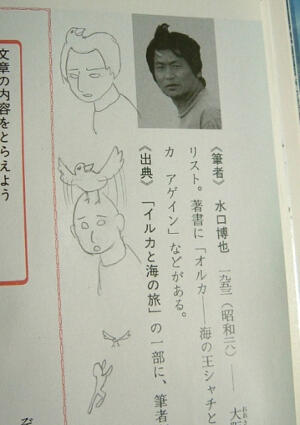 《筆者》 水口博也 一九五三(昭和二八)―― 大
リスト。著書に「オルカ――海の王シャチと
カ アゲイン」などがある。
《出典》「イルカと海の旅」の一部に、筆者
文章の内容をとらえよう